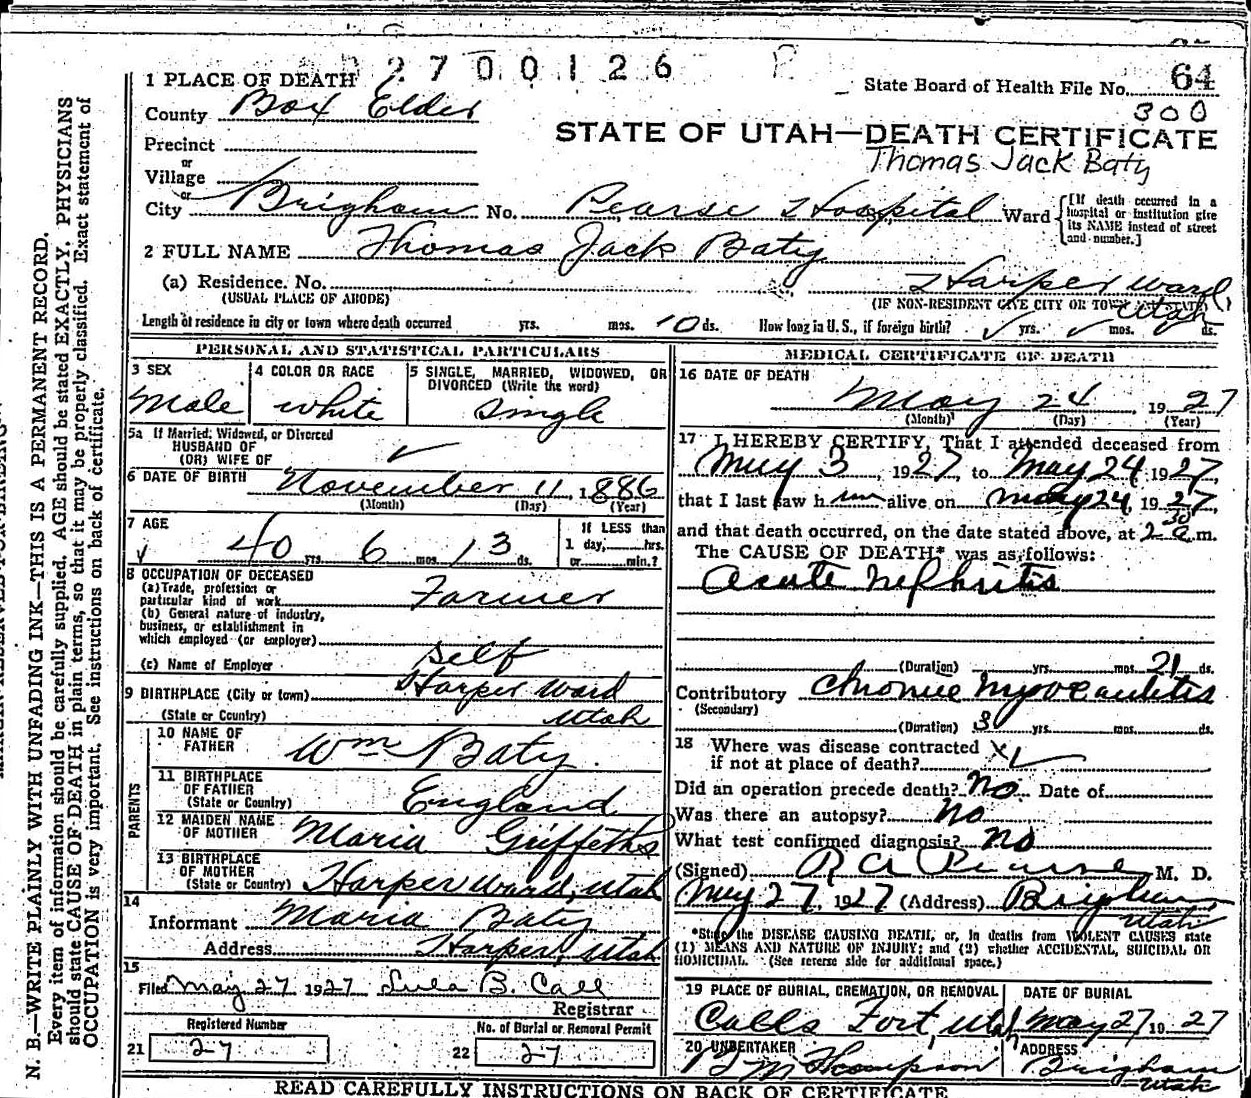 2700126
1 PLACE OF DEATH
State Board of Health File No. 64
300
County Box Elder
STATE OF UTAH—DEATH CERTIFICATE
Thomas Jack Baty
Precinct
or
Village
or
City Brigham No. Pearse Hospital Ward [If death occurred in a hospital or institution give its NAME instead of street and number.]
2 FULL NAME Thomas Jack Baty
(a) Residence. No. Harper Ward, Utah
(USUAL PLACE OF ABODE) (IF NON-RESIDENT GIVE CITY OR TOWN AND STATE)
Length of residence in city or town where death occurred yrs. mos. 10 ds. How long in U. S., if foreign birth? yrs. mos. ds.
PERSONAL AND STATISTICAL PARTICULARS
3 SEX 4 COLOR OR RACE 5 SINGLE, MARRIED, WIDOWED, OR DIVORCED (Write the word)
Male white Single
5a If Married, Widowed, or Divorced
HUSBAND OF
(OR) WIFE OF
6 DATE OF BIRTH November 11, 1886
(Month) (Day) (Year)
7 AGE If LESS than
40 yrs. 6 mos. 13 ds. 1 day, hrs.
or min.?
8 OCCUPATION OF DECEASED
(a) Trade, profession or
particular kind of work Farmer
(b) General nature of industry,
business, or establishment in
which employed (or employer)
self
(c) Name of Employer
9 BIRTHPLACE (City or town) Harper Ward
(State or Country) Utah
PARENTS
10 NAME OF
FATHER Wm Baty
11 BIRTHPLACE
OF FATHER
(State or Country) England
12 MAIDEN NAME
OF MOTHER Maria Griffeths
13 BIRTHPLACE
OF MOTHER
(State or Country) Harper Ward, Utah
14
Informant Maria Baty
Address Harper, Utah
15
Filed May 27 1927 Lula B. Call
Registrar
Registered Number No. of Burial or Removal Permit
21 27 22 27
MEDICAL CERTIFICATE OF DEATH
16 DATE OF DEATH
May 24, 1927
(Month) (Day) (Year)
17 I HEREBY CERTIFY, That I attended deceased from
May 3, 1927 to May 24, 1927
that I last saw him alive on May 24, 1927,
and that death occurred, on the date stated above, at 2 30 a.m.
The CAUSE OF DEATH* was as follows:
Acute Nephritis
(Duration) yrs. mos. 21 ds.
Contributory Chronic Myocarditis
(Secondary)
(Duration) 3 yrs. mos. ds.
18 Where was disease contracted
if not at place of death?
Did an operation precede death? No Date of
Was there an autopsy? No
What test confirmed diagnosis? No
(Signed) R A Pearse M. D.
May 27, 1927 (Address) Brigham,
Utah
*State the DISEASE CAUSING DEATH, or, in deaths from VIOLENT CAUSES state
(1) MEANS AND NATURE OF INJURY; and (2) whether ACCIDENTAL, SUICIDAL OR
HOMICIDAL. (See reverse side for additional space.)
19 PLACE OF BURIAL, CREMATION, OR REMOVAL DATE OF BURIAL
Calls Fort, Utah May 27 1927
20 UNDERTAKER ADDRESS
Thompson Brigham
Utah
READ CAREFULLY INSTRUCTIONS ON BACK OF CERTIFICATE
N. B.—WRITE PLAINLY WITH UNFADING INK—THIS IS A PERMANENT RECORD.
Every item of information should be carefully supplied. AGE should be stated EXACTLY. PHYSICIANS
should state CAUSE OF DEATH in plain terms, so that it may be properly classified. Exact statement of
OCCUPATION is very important. See instructions on back of certificate.